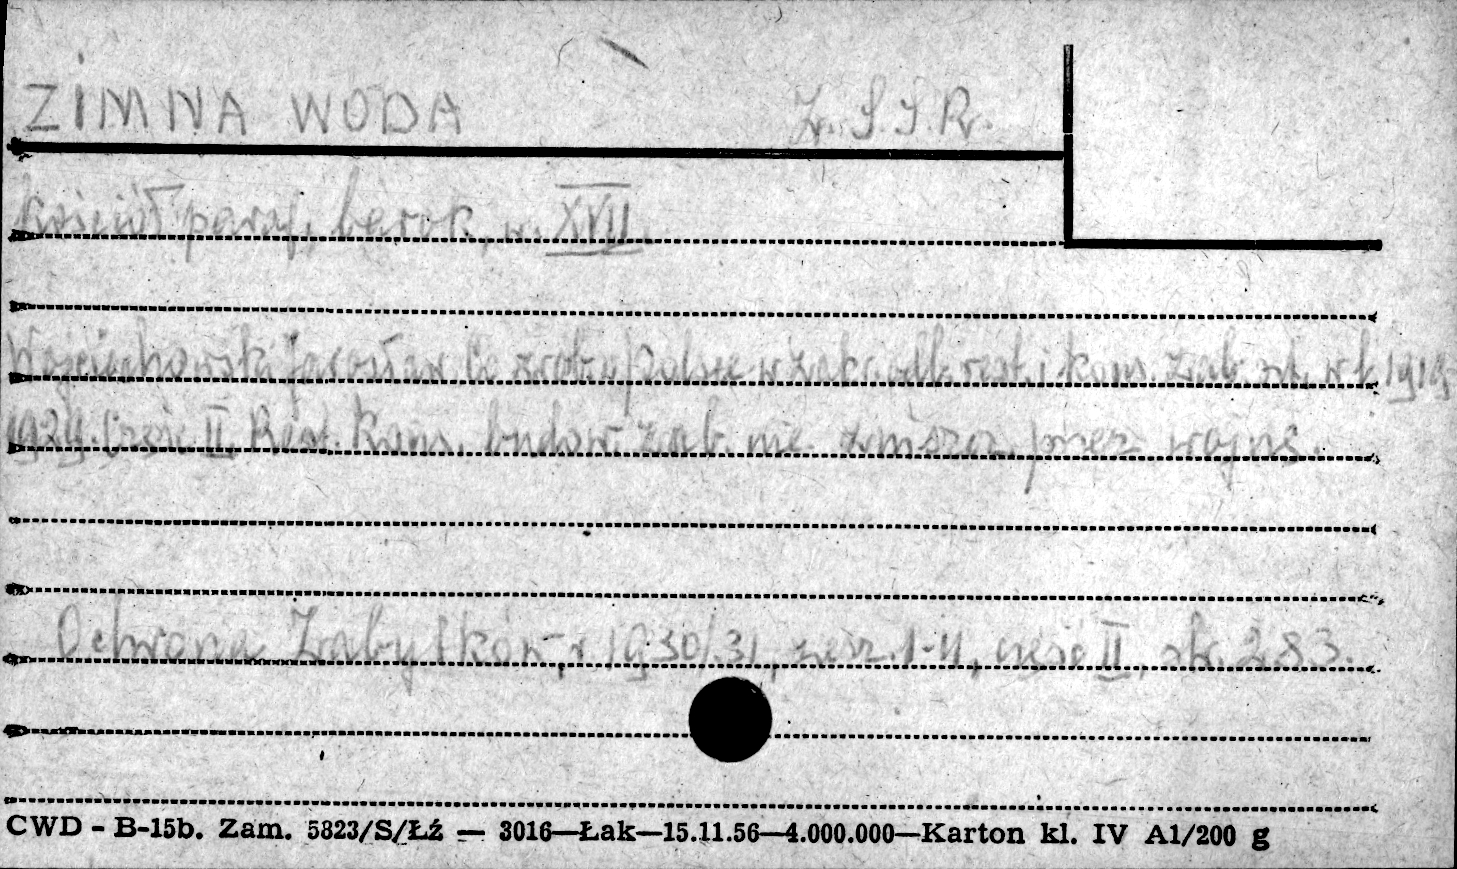 ZIMNA WODA Z.S.S.R.
kościół paraf, barok, w. XVII.
Wojciechowski Jarosław Co zrob. w Polsce w zakr. odb. rest. i kons. zab. szt. w l. 1919-
1929. Część II Rest. Kons. budow. zab. nie zniszcz. przez wojnę.
Ochrona Zabytków, r. 1930/31, zesz. 1-4, część II, str. 283.
CWD - B-15b. Zam. 5823/S/Łź — 3016—Łak—15.11.56—4.000.000—Karton kl. IV A1/200 g